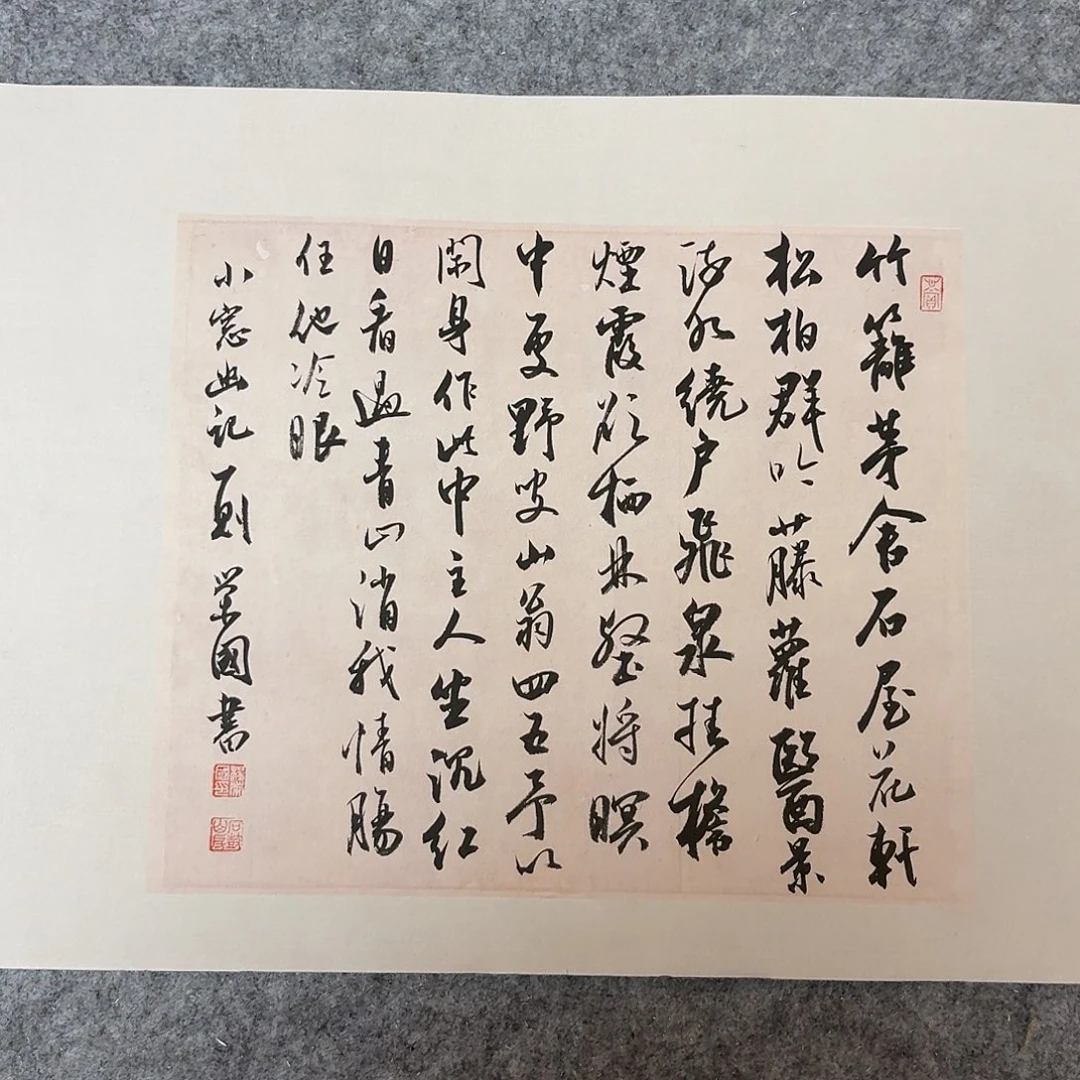 竹籬茅舍石屋花軒
松柏群吟藤蘿醫景
流水繞户飛泉挂檐
煙霞欲栖林壑將暝
中更野叟山翁四五予以
閑身作此中主人坐沉紅
日看遍青山消我情腸
任他冷眼
小窓幽記一則 榮國書